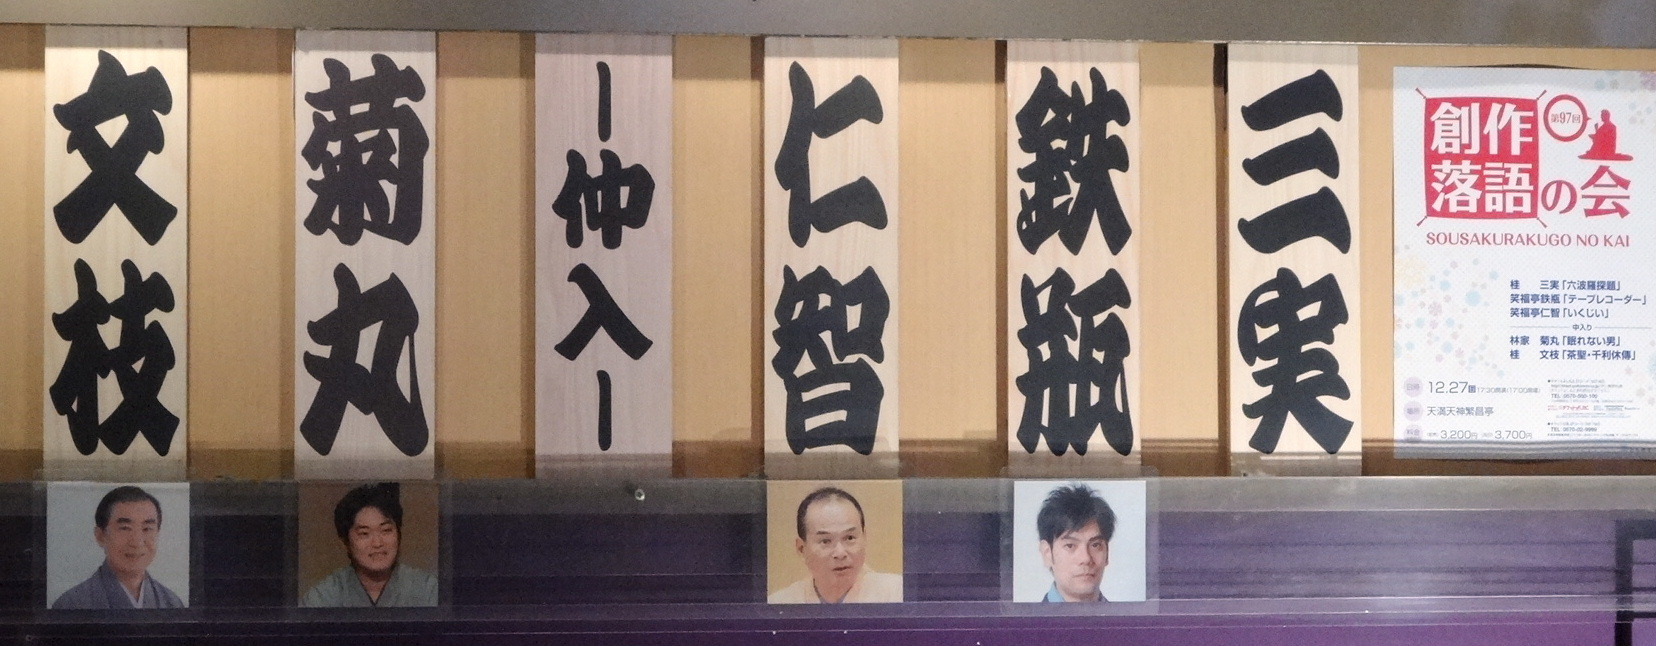 三実
鉄瓶
仁智
ー仲入ー
菊丸
文枝
創作
落語の会
第97回
SOUSAKURAKUGO NO KAI
桂 三実「六波羅探題」
笑福亭鉄瓶「テープレコーダー」
笑福亭仁智「いくじい」
中入り
林家 菊丸「眠れない男」
桂 文枝「茶聖・千利休傳」
日時 12.27
場所 天満天神繁昌亭
料金 3,200円 3,700円